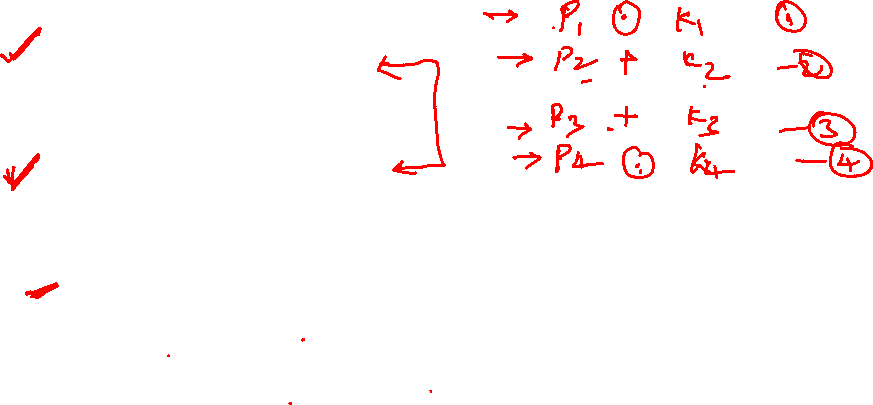 → P1 ⊙ K1 ①
→ P2 + K2 - ②
→ P3 + K3 - ③
→ P4 ⊙ K4 - ④